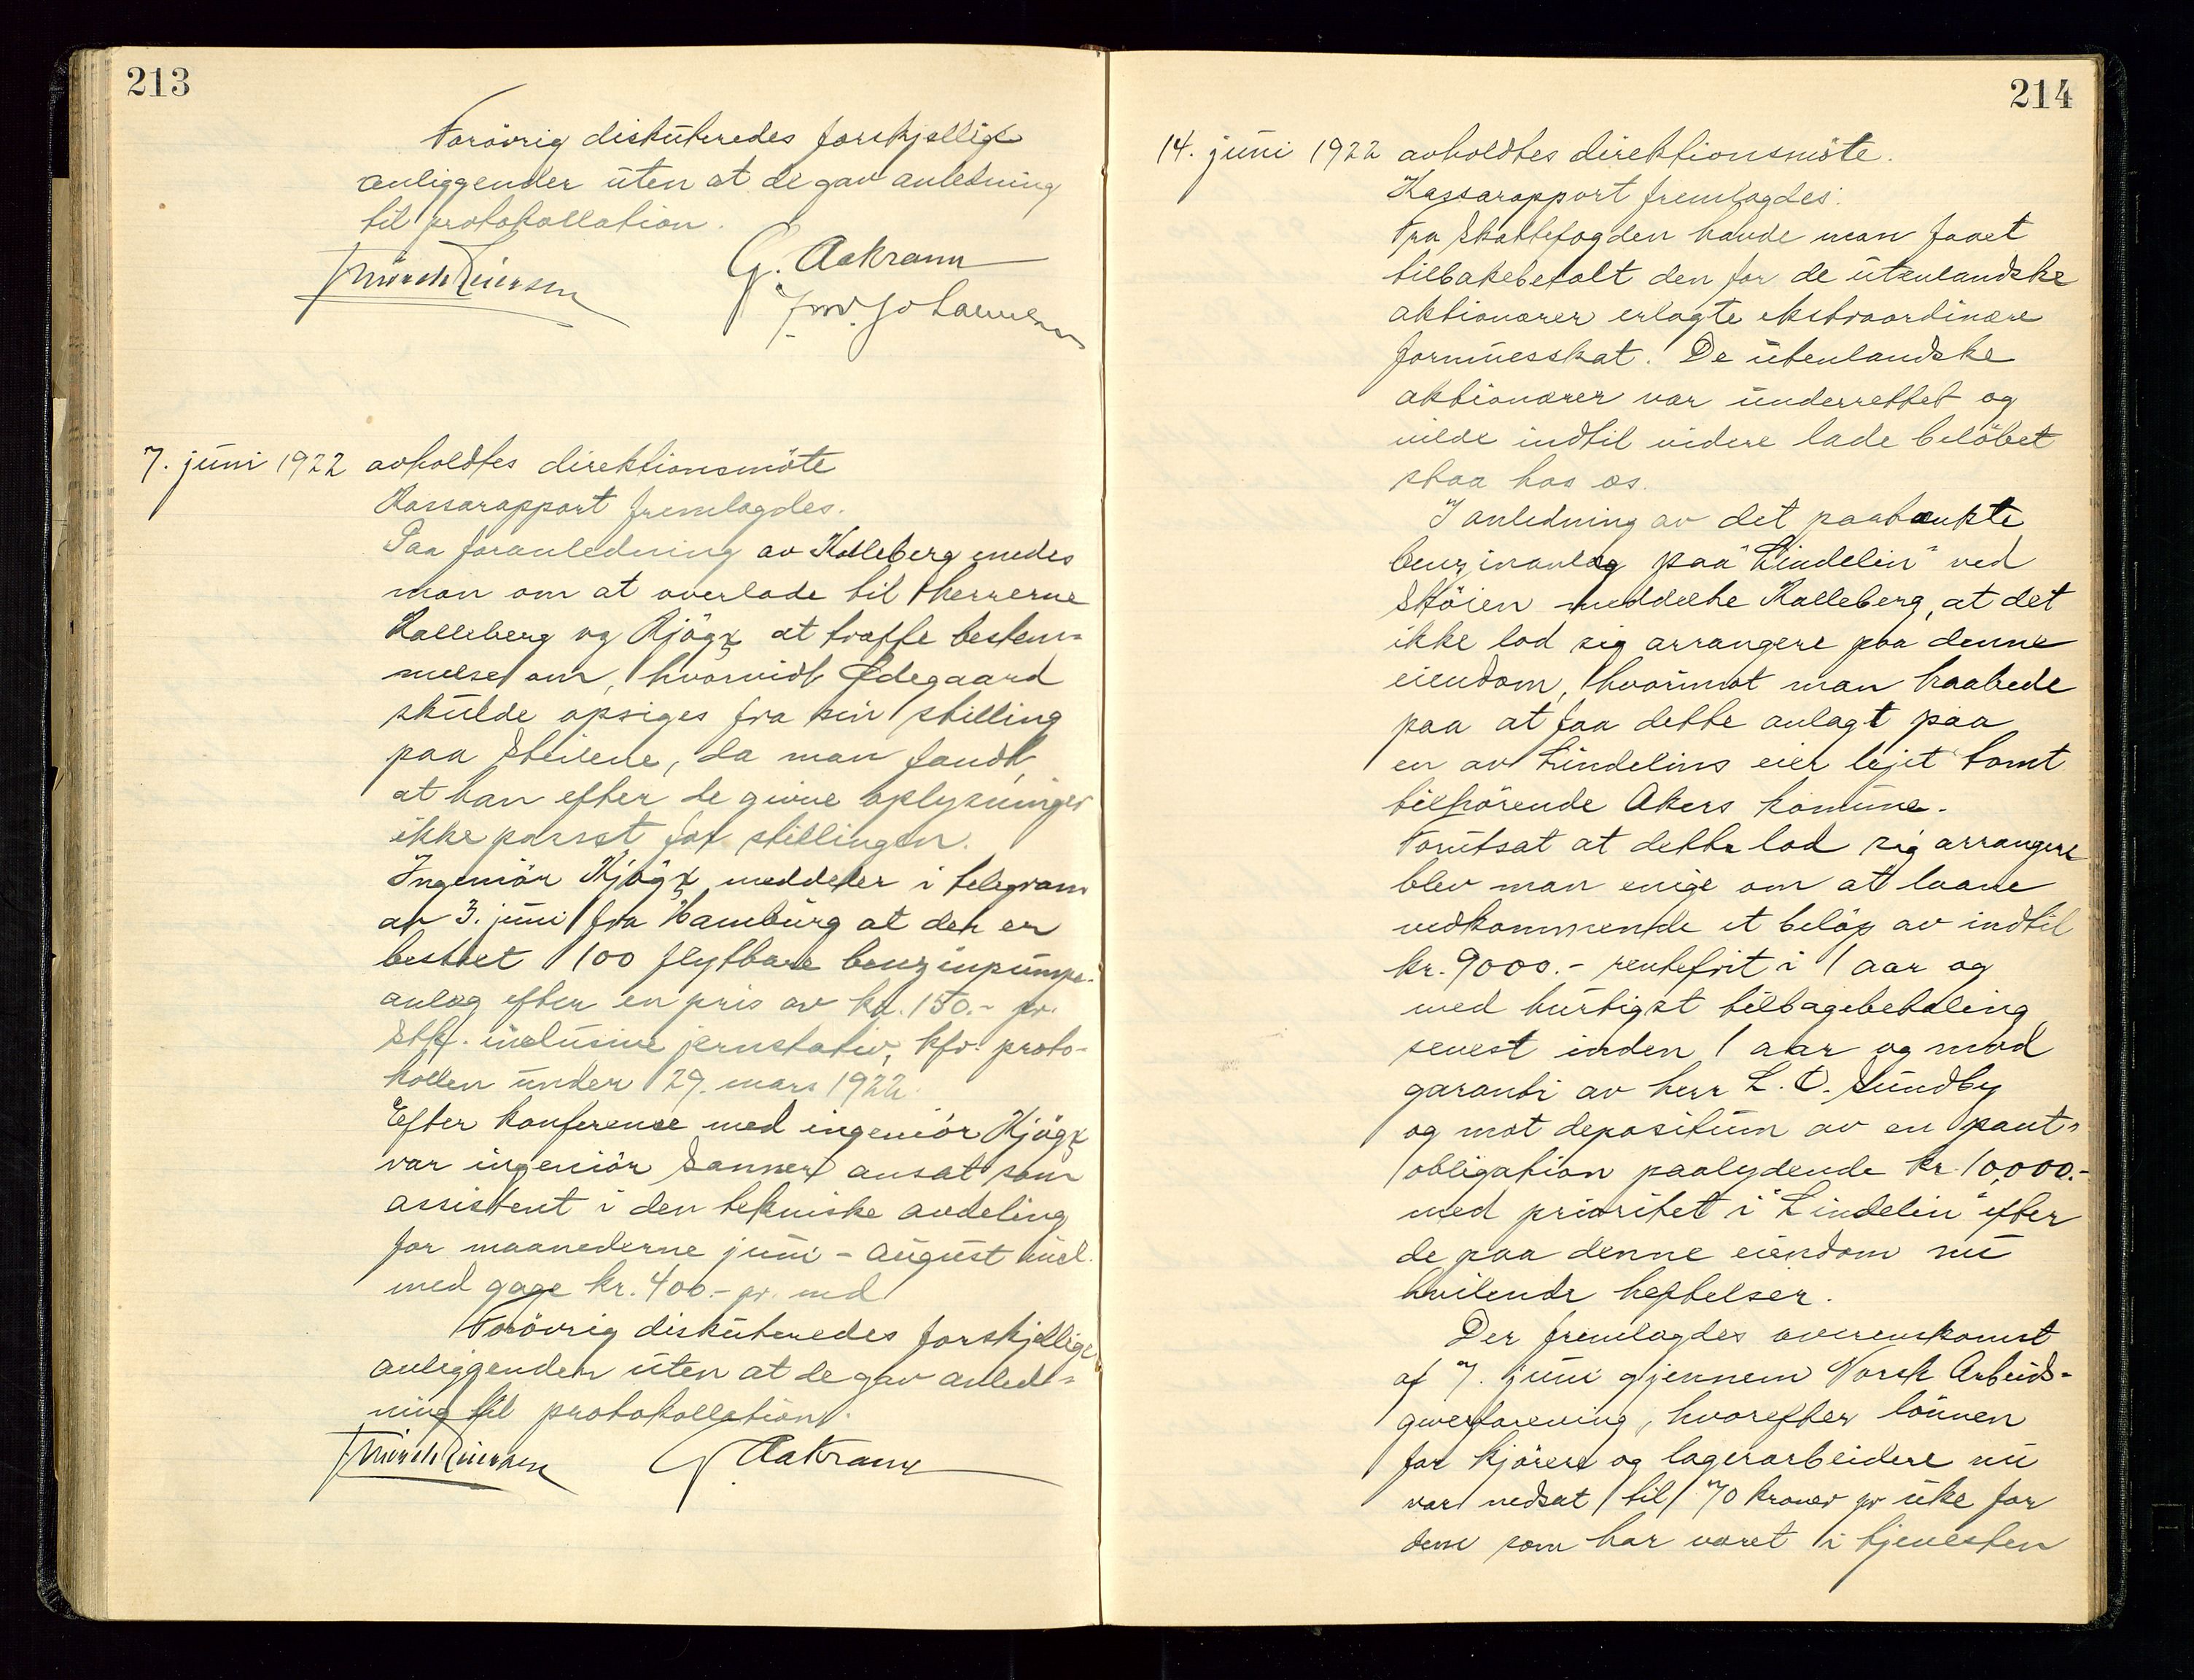 213
Forövrig diskuteredes forskjellige
anliggender uten at de gav anledning
til protokollation.
G. Aakrann
7. juni 1922 avholdtes direktionsmöte
Kassarapport fremlagdes.
Paa foranledning av Kolleberg enedes
man om at overlade til herrerne
Kalleberg og Kjögx at træffe bestem-
melse om, hvorvidt Ødegaard
skulde opsiges fra sin stilling
paa Steilene, da man fandt,
at han efter de givne oplysninger
ikke passet for stillingen.
Ingeniör Kjögx meddeler i telegram
av 3. juni fra Hamburg at der er
bestilt 100 flytbare benzinpumpe-
anlæg efter en pris av kr. 150.- pr.
Stk. inclusive jernstativ, kfr. proto-
kollen under 29. mars 1922.
Efter konference med ingeniör Kjögx
var ingeniör Sanner ansat som
assistent i den tekniske avdeling
for maanederne juni - august incl.
med gage kr. 400.- pr. md
Forövrig diskuteredes forskjellige
anliggender uten at de gav anled-
ning til protokollation.
G. Aakrann
214
14. juni 1922 avholdtes direktionsmöte.
Kassarapport fremlagdes.
Fra Skattefogden havde man faaet
tilbakebetalt den for de utenlandske
aktionærer erlagte ekstraordinære
formuesskat. De utenlandske
aktionærer var underrettet og
vilde indtil videre lade belöbet
staa hos os.
I anledning av det paatænkte
benzinanlæg paa "Lindelin" ved
Sköien meddelte Kalleberg, at det
ikke lod sig arrangere paa denne
eiendom, hvorimot man haabede
paa at faa dette anlagt paa
en av Lindelins eier lejet tomt
tilhörende Akers komune.
Forutsat at dette lod sig arrangere
blev man enige om at laane
vedkommende et belöp av indtil
kr. 9000.- rentefrit i 1 aar og
med hurtigst tilbagebetaling
senest inden 1 aar og mod
garanti av herr L. O. Sundby
og mot depositum av en pant-
obligation paalydende kr. 10,000.-
med prioritet i "Lindelin" efter
de paa denne eiendom nu
hvilende heftelser.
Der fremlagdes overenskomst
af 7. juni gjennem Norsk Arbeids-
giverforening, hvorefter lönnen
for kjörere og lagerarbeidere nu
var nedsat til 70 kroner pr uke for
dem som har været i tjenesten